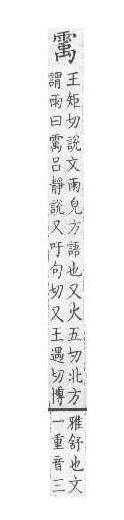 䨞
王矩切說文雨皃方語也又火五切北方
謂雨曰䨞呂靜說又吁句切又王遇切博
雅舒也文
一重音三